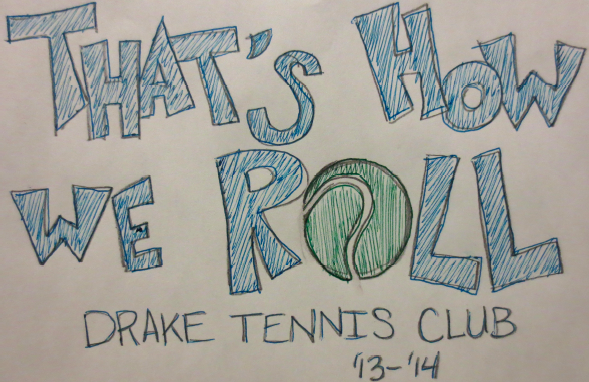 THAT'S HOW
WE ROLL
DRAKE TENNIS CLUB
'13-'14